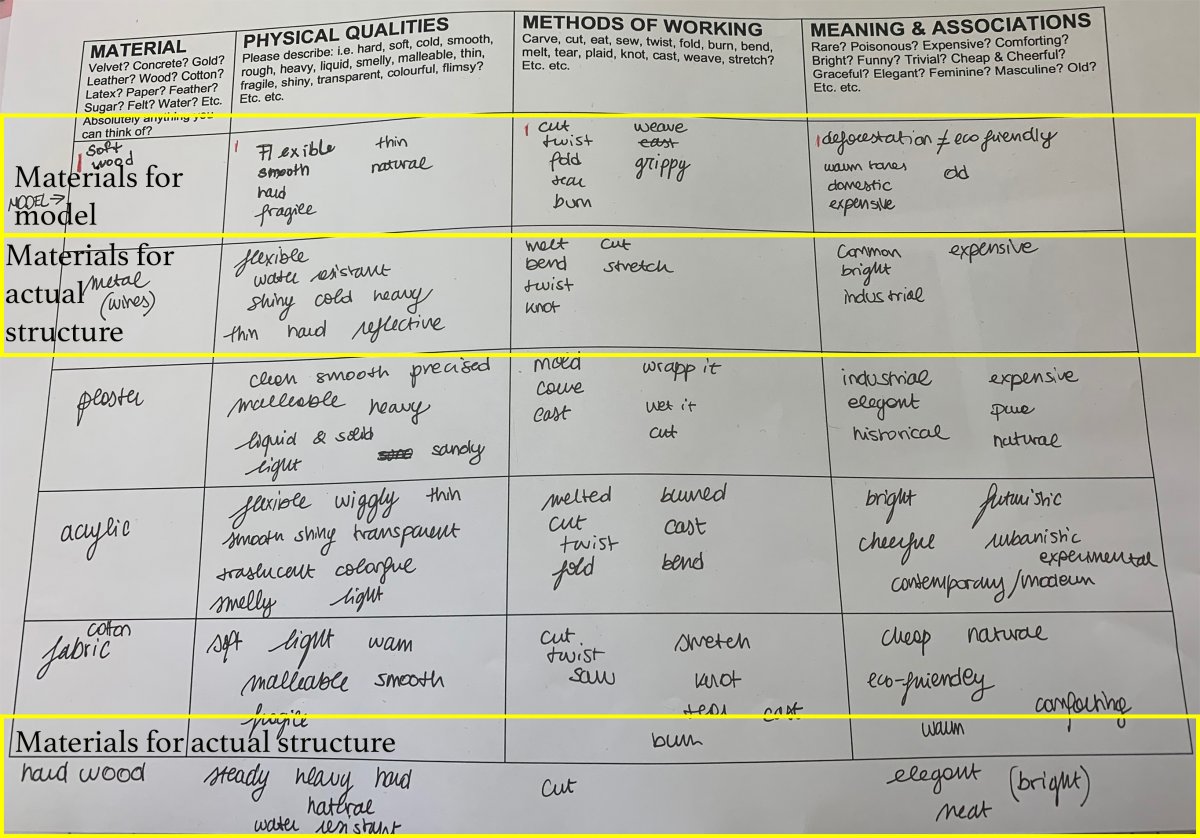 MATERIAL
Velvet? Concrete? Gold?
Leather? Wood? Cotton?
Latex? Paper? Feather?
Sugar? Felt? Water? Etc.
Absolutely anything you
can think of?
PHYSICAL QUALITIES
Please describe: i.e. hard, soft, cold, smooth,
rough, heavy, liquid, smelly, malleable, thin,
fragile, shiny, transparent, colourful, flimsy?
Etc. etc.
METHODS OF WORKING
Carve, cut, eat, sew, twist, fold, burn, bend,
melt, tear, plaid, knot, cast, weave, stretch?
Etc. etc.
MEANING & ASSOCIATIONS
Rare? Poisonous? Expensive? Comforting?
Bright? Funny? Trivial? Cheap & Cheerful?
Graceful? Elegant? Feminine? Masculine? Old?
Etc. etc.
soft
wood
Materials for
model
MODEL →
Flexible thin
smooth natural
hard
fragile
cut weave
twist cast
fold grippy
tear
burn
deforestation ≠ eco friendly
warm tones old
domestic
expensive
Materials for
actual
structure
metal
(wires)
flexible
water resistant
shiny cold heavy
thin hard reflective
melt cut
bend stretch
twist
knot
Common expensive
bright
industrial
plaster
clean smooth precised
malleable heavy
liquid & solid
light sandy
mold wrapp it
carve wet it
cast cut
industrial expensive
elegant pure
historical natural
acrylic
flexible wiggly thin
smooth shiny transparent
traslucent colorful
smelly light
melted burned
cut cast
twist
fold bend
bright futuristic
cheerful urbanistic
experimental
contemporary/modern
cotton
fabric
soft light warm
malleable smooth
fragile
cut stretch
twist
saw knot
tear cast
burn
cheap natural
eco-friendly
comforting
warm
Materials for actual structure
hard wood
steady heavy hard
natural
water resistant
cut
elegant (bright)
neat